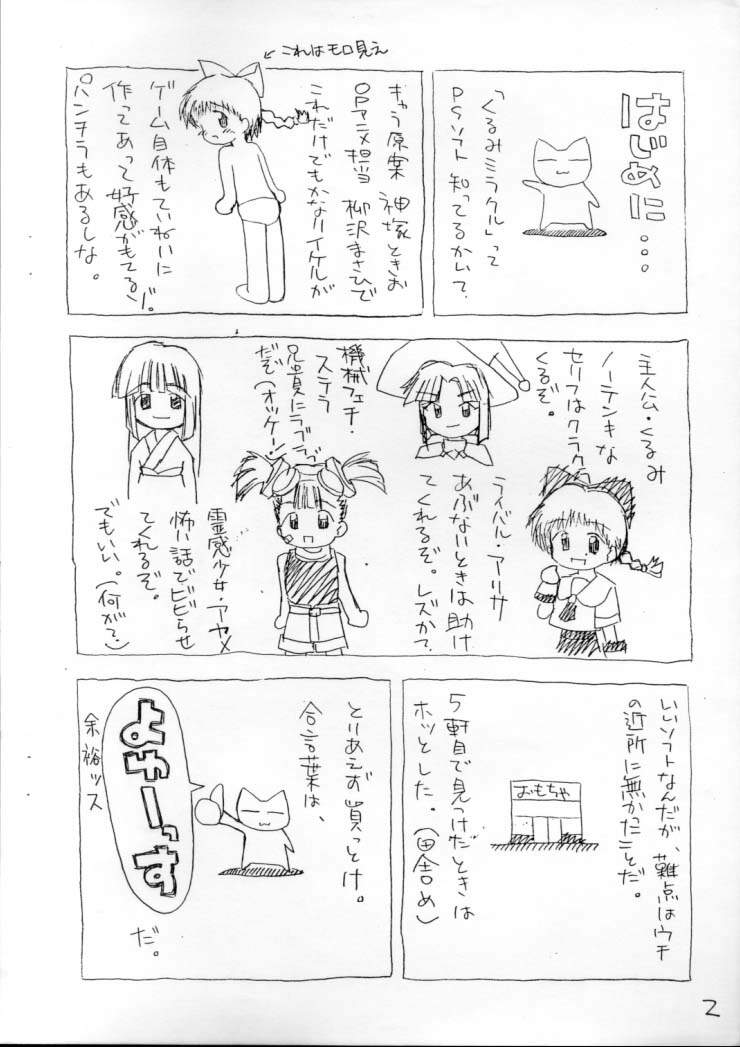 はじめに…。
「くるみミラクル」って
PSソフト知ってるかいて?
←これはモロ見え
きゃら原案 神塚ときお
OPアニメ担当 柳沢まさひで
これだけでもかなりイケルが
ゲーム自体もていねいに
作ってあって好感がもてるゾ。
パンチラもあるしな。
主人公・くるみ
ノーテンキな
セリフはクラクラ
くるぞ。
ライバル・アリサ
あぶないときは助け
てくれるぞ。レズか?
機械フェチ・
ステラ
兄貴にラブラブ
だぞ(オッケー)
霊感少女・アヤメ
怖い話でビビらせ
てくれるぞ。
でもいい。(何が?)
いいソフトなんだが、難点はウチ
の近所に無かったことだ。
5軒目で見つけたときは
ホッとした。(田舎め)
おもちゃ
とりあえず買っとけ。
合言葉は、
よゆーっす
余裕ッス
だ。
2